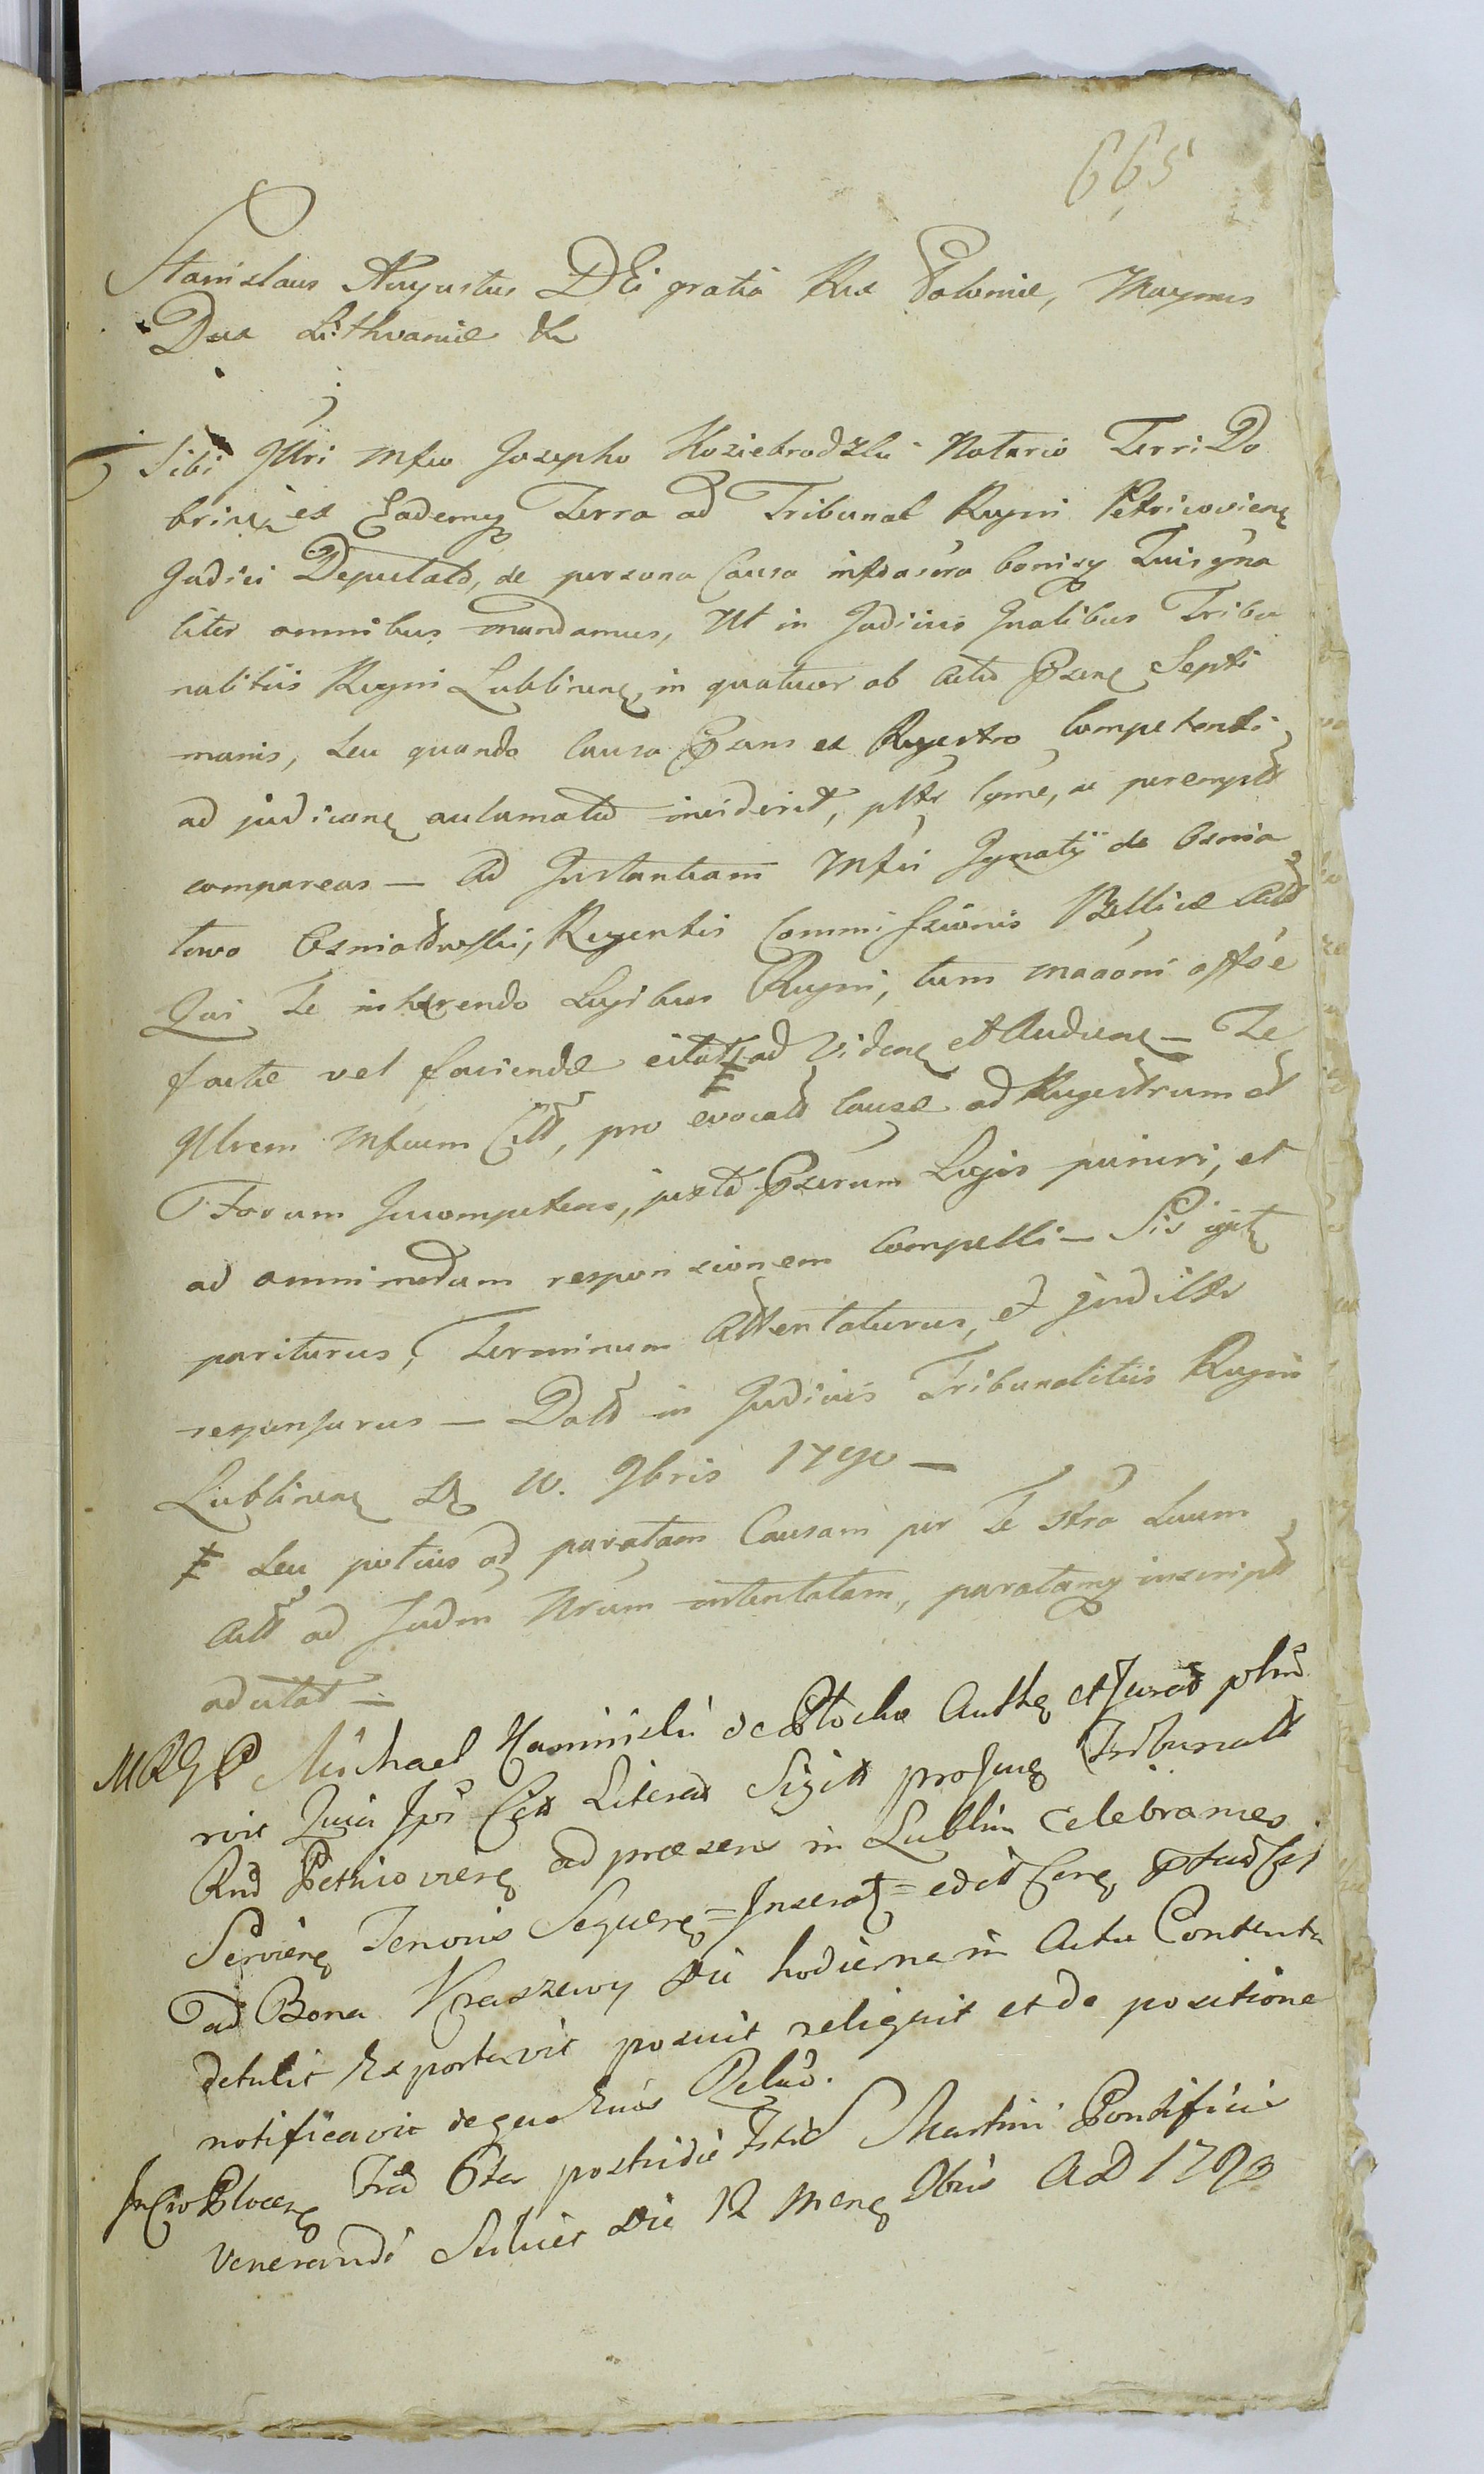 665
Stanislaus Augustus DEi gratia Rex Poloniæ, Magnus
Dux Lithvaniæ &
Tibi Illri Mfco Josepho Koziebrodzki Notario Terri Do
brinen ex Eademq Terra ad Tribunal Regni Petricovien
Judici Deputato, de persona Causa infrascra bonisq Tuis gna
liter omnibus mandamus, Ut in Judiciis Gnalibus Tribu
nalitiis Regni Lublinen, in quatuor ab actu Psen Septi
manis, seu quando Causa Psens ex Regestro Competenti
ad judican aclamatu inciderit, pltr lgme, ac perempt
compareas — Ad Instantiam Mfci Ignatij de Osmia
lowo Osmialowski, Regentis Commissionis Bellicæ Actt
Qui Te inhærendo Legibus Regni, tum maaoni offsæ
factæ vel faciendæ citat ad Viden et Audien — Te
Illrem Mfcum Citt, pro evocatt Causæ ad Regestrum et
Forum Incompetens, juxta Pscrum Legis puniri, et
ad omnimodam responsionem Compelli — Sis igit
pariturus, Terminum Attentaturus, et judiltr
responsurus — Datt in Judiciis Tribunalitiis Regni
Lublinen D 10. 9bris 1790 —
seu potius ad paratam Causam per Te ctra suum
Actt ad Judm Nrum intentatam, paratamq inscript
adcitat —
Michael Kaminski de Plocko Authen et Jurat
vit Quia Ips Cit Literas Sigitt
Rnd Petricovien ad præsens in Lublin Celebrames
Servien Tenoris Sequen = Inserat = edit
ad Bona Kraszewy Die hodierna in Actu Contenta
detulit Exportavit posuit reliquit et de positione
notificavit de quo Suas Relaō.
In Cro Plocen Frd 6ta postridie Fsti S Martini Pontificis
Venerandi Scilicet Die 12 Mens 9bris AD 1790